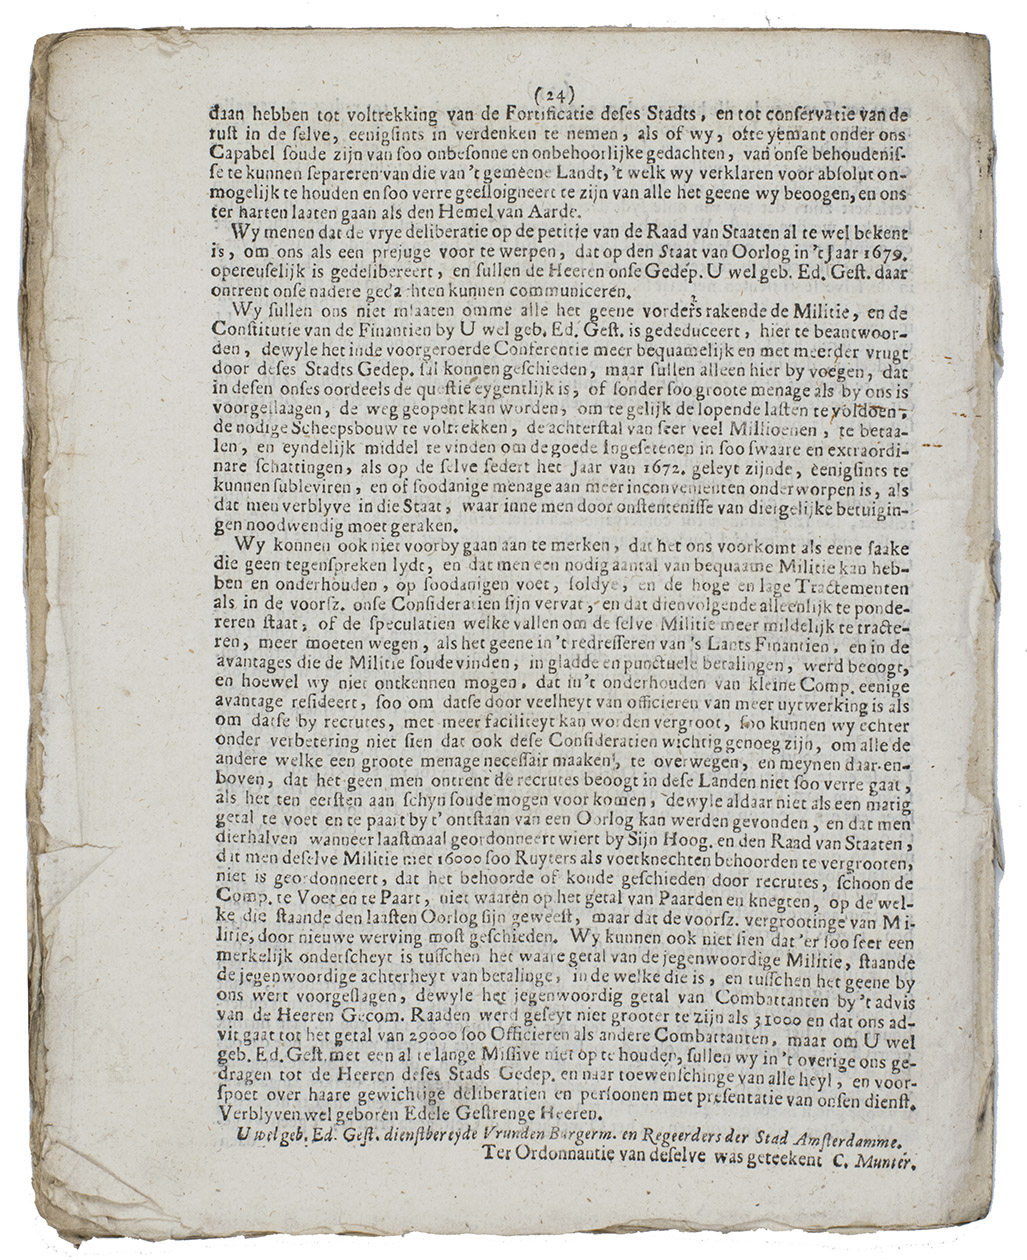 (24)
daan hebben tot voltrekking van de Fortificatie deses Stadts, en tot conservatie van de
rust in de selve, eenigsints in verdenken te nemen, als of wy, ofte yemant onder ons
Capabel soude zijn van soo onbesonne en onbehoorlijke gedachten, van onse behoudenis-
se te kunnen separeren van die van 't gemeene Landt, 't welk wy verklaren voor absolut on-
mogelijk te houden en soo verre geesloigneert te zijn van alle het geene wy beoogen, en ons
ter harten laaten gaan als den Hemel van Aarde.
Wy menen dat de vrye deliberatie op de petitje van de Raad van Staaten al te wel bekent
is, om ons als een prejuge voor te werpen, dat op den Staat van Oorlog in 't Jaar 1679.
opereuselijk is gedelibereert, en sullen de Heeren onse Gedep. U wel geb. Ed. Gest. daar
ontrent onse nadere gedachten kunnen communiceren.
Wy sullen ons niet inlaaten omme alle het geene vorders rakende de Militie, en de
Constitutie van de Financien by U wel geb. Ed. Gest. is gededuceert, hier te beantwoor-
den, dewyle het inde voorgeroerde Conferentie meer bequamelijk en met meerder vrugt
door deses Stadts Gedep. sal konnen geschieden, maar sullen alleen hier by voegen, dat
in desen onses oordeels de questie eygentlijk is, of sonder soo groote menage als by ons is
voorgeslaagen, de weg geopent kan worden, om te gelijk de lopende lasten te voldoen,
de nodige Scheepsbouw te voltrekken, de achterstal van seer veel Millioenen, te betaa-
len, en eyndelijk middel te vinden om de goede Ingesetenen in soo swaare en extraordi-
nare schattingen, als op de selve sedert het Jaar van 1672. geleyt zijnde, eenigsints te
kunnen subleviren, en of soodanige menage aan meer inconvenienten onderworpen is, als
dat men verblyve in die Staat, waar inne men door onstentenisse van diergelijke betuigin-
gen noodwendig moet geraken.
Wy konnen ook niet voorby gaan aan te merken, dat het ons voorkomt als eene saake
die geen tegenspreken lydt, en dat men een nodig aantal van bequaame Militie kan heb-
ben en onderhouden, op soodanigen voet, soldye, en de hoge en lage Tractementen
als in de voorsz. onse Consideratien sijn vervat, en dat dienvolgende alleenlijk te ponde-
reren staat, of de speculatien welke vallen om de selve Militie meer mildelijk te tracte-
ren, meer moeten wegen, als het geene in 't redresseren van 's Lants Financien, en in de
avantages die de Militie soude vinden, in gladde en punctuele betalingen, werd beoogt,
en hoewel wy niet ontkennen mogen, dat in 't onderhouden van kleine Comp. eenige
avantage resideert, soo om datse door veelheyt van officieren van meer uytwerking is als
om datse by recrutes, met meer faciliteyt kan worden vergroot, soo kunnen wy echter
onder verbetering niet sien dat ook dese Consideratien wichtig genoeg zijn, om alle de
andere welke een groote menage necessair maaken, te overwegen, en meynen daar-en-
boven, dat het geen men ontrent de recrutes beoogt in dese Landen niet soo verre gaat,
als het ten eersten aan schyn soude mogen voor komen, dewyle aldaar niet als een matig
getal te voet en te paart by t' ontstaan van een Oorlog kan werden gevonden, en dat men
dierhalven wanneer laastmaal geordonneert wiert by Sijn Hoog. en den Raad van Staaten,
dat men deselve Militie met 16000 soo Ruyters als voetknechten behoorden te vergrooten,
niet is geordonneert, dat het behoorde of konde geschieden door recrutes, schoon de
Comp. te Voet en te Paart, niet waaren op het getal van Paarden en knegten, op de wel-
ke die staande den laasten Oorlog sijn geweest, maar dat de voorsz. vergrootinge van Mi-
litie, door nieuwe werving most geschieden. Wy kunnen ook niet sien dat 'er soo seer een
merkelijk onderscheyt is tusschen het waare getal van de jegenwoordige Militie, staande
de jegenwoordige achterheyt van betalinge, in de welke die is, en tusschen het geene by
ons wert voorgeslagen, dewyle het jegenwoordig getal van Combattanten by 't advis
van de Heeren Gecom. Raaden werd geseyt niet grooter te zijn als 31000 en dat ons ad-
vis gaat tot het getal van 29000 soo Officieren als andere Combattanten, maar om U wel
geb. Ed. Gest. met een al te lange Missive niet op te houden, sullen wy in 't overige ons ge-
dragen tot de Heeren deses Stads Gedep. en naar toewenschinge van alle heyl, en voor-
spoet over haare gewichtige deliberatien en persoonen met presentatie van onsen dienst.
Verblyven wel geboren Edele Gestrenge Heeren.
U wel geb. Ed. Gest. dienstbereyde Vrunden Burgerm. en Regeerders der Stad Amsterdamme.
Ter Ordonnantie van deselve was geteekent C. Munter.